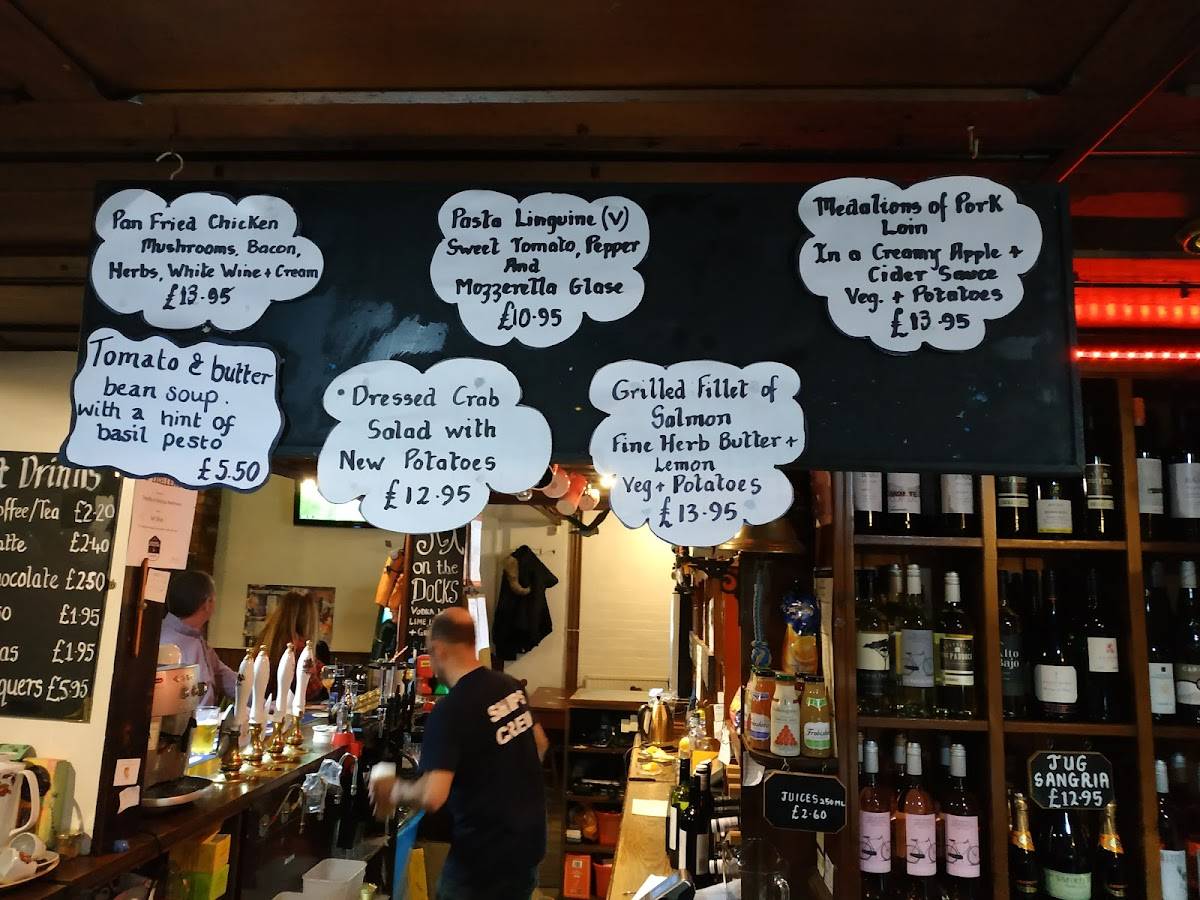 Pan Fried Chicken
Mushrooms, Bacon,
Herbs, White Wine + Cream
£13.95
Pasta Linguine (v)
Sweet Tomato, Pepper
And
Mozzerella Glase
£10.95
Medalions of Pork
Loin
In a Creamy Apple +
Cider Sauce
Veg. + Potatoes
£13.95
Tomato & butter
bean soup.
with a hint of
basil pesto
£5.50
Dressed Crab
Salad with
New Potatoes
£12.95
Grilled Fillet of
Salmon
Fine Herb Butter +
Lemon
Veg + Potatoes
£13.95
t Drinks
offee/Tea £2.20
atte £2.40
hocolate £2.50
so £1.95
as £1.95
quers £5.95
on the
Docks
Vodka
Lime
SHIPS
CREW
JUICES 250ML
£2.60
JUG
SANGRIA
£12.95